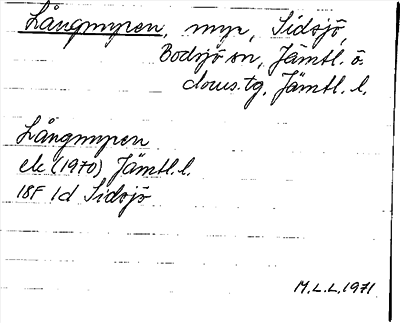 Långmyren, myr, Sidsjö,
Bodsjö sn, Jämtl. ö.
doms.tg, Jämtl. l.
Långmyren
ek (1970) Jämtl. l.
18F 1d Sidsjö
M.L.L. 1971